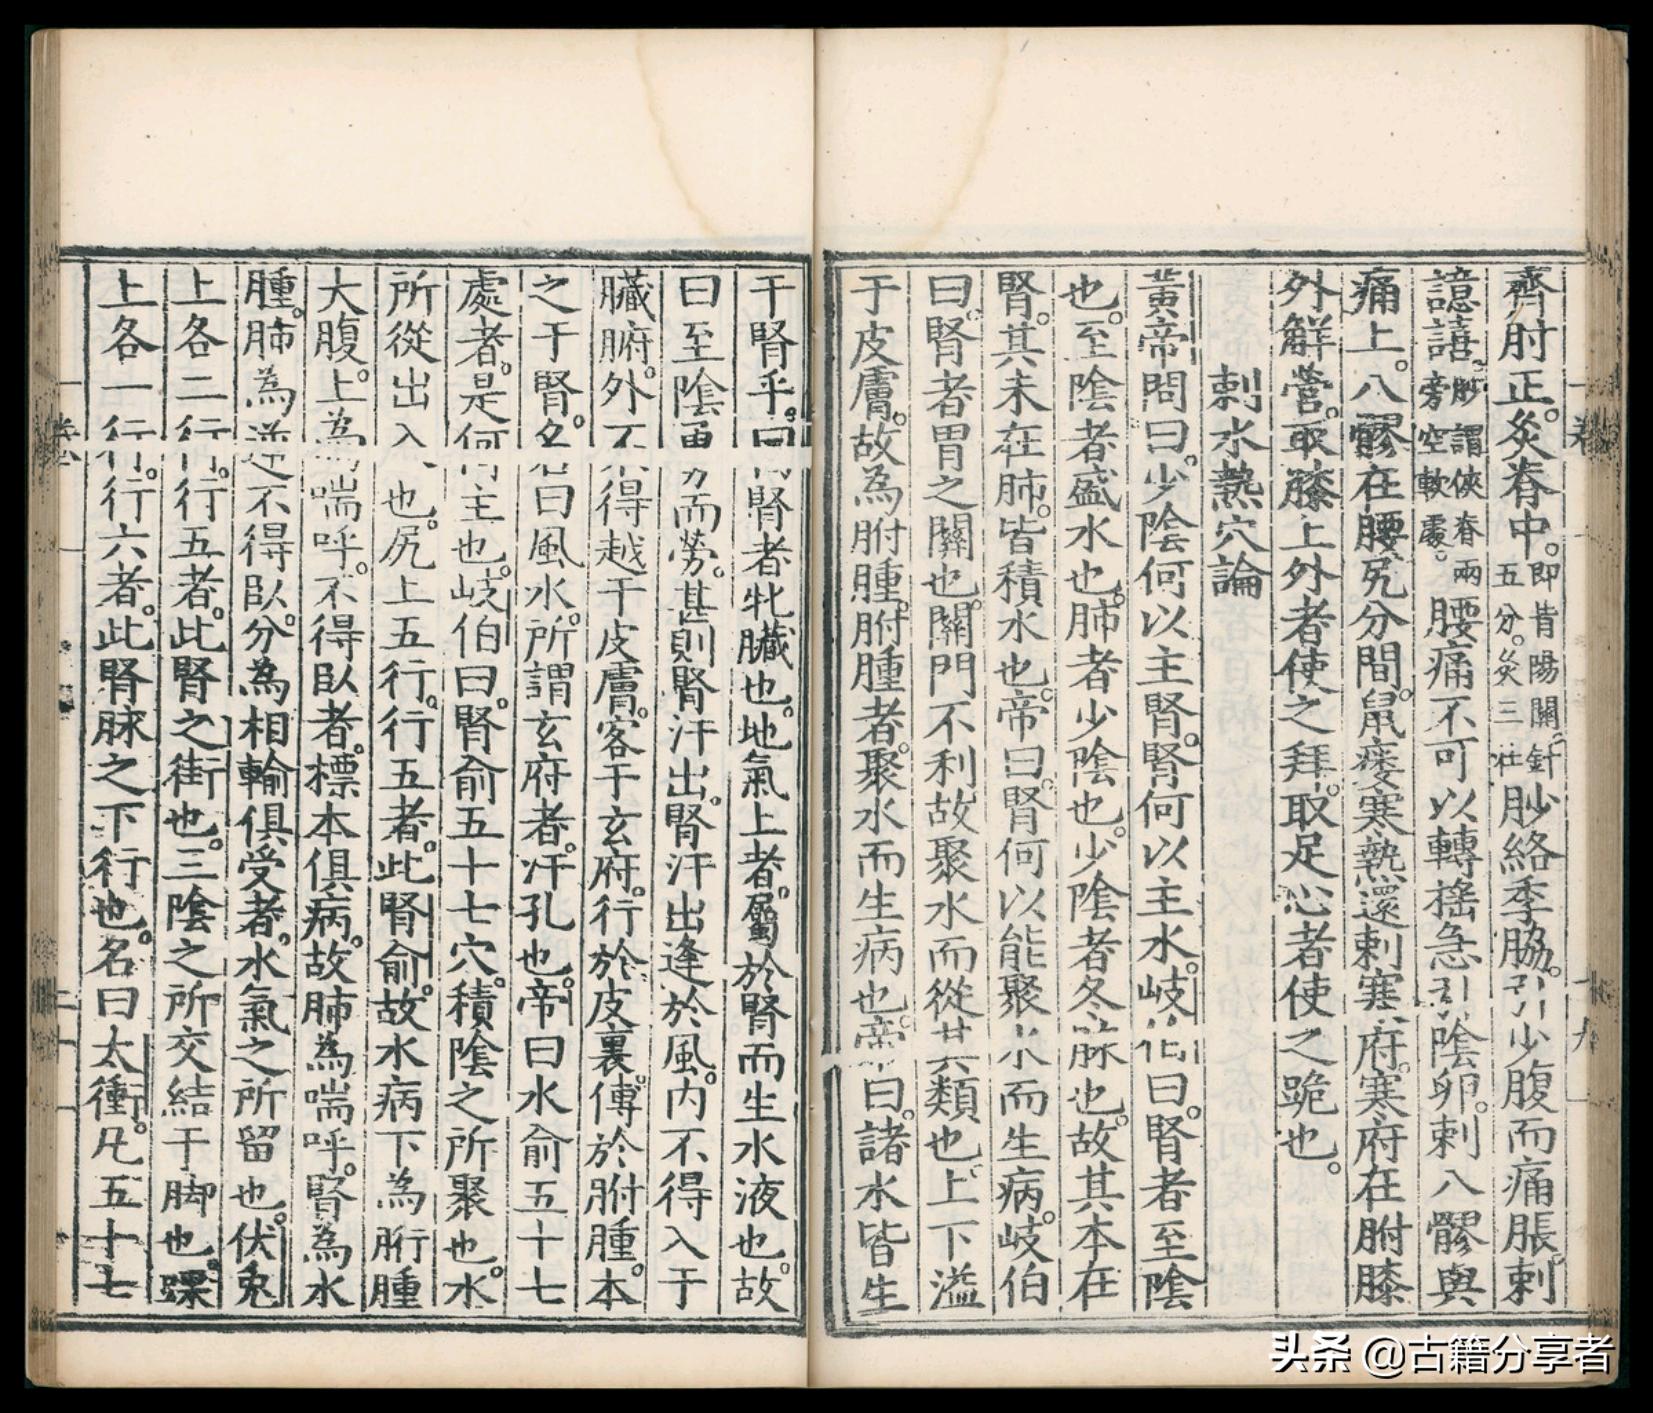 齊肘正。灸脊中。即背陽關。針五分。灸三壯䏚絡季脇。引少腹而痛脹。刺
譩譆。䏚謂俠脊兩旁空軟處。腰痛不可以轉搖。急引陰卵。刺八髎與
痛上。八髎在腰尻分間。鼠瘻寒熱。還刺寒府。寒府在胕膝
外解營。取膝上外者使之拜。取足心者使之跪也。
刺水熱穴論
黃帝問曰。少陰何以主腎。腎何以主水。岐伯曰。腎者至陰
也。至陰者盛水也。肺者少陰也。少陰者冬脉也。故其本在
腎。其末在肺。皆積水也。帝曰。腎何以能聚水而生病。岐伯
曰。腎者胃之關也。關門不利故聚水而從其類也。上下溢
于皮膚。故為胕腫。胕腫者。聚水而生病也。帝曰。諸水皆生
于腎乎。曰腎者牝臟也。地氣上者。屬於腎而生水液也。故
曰至陰。勇而勞。甚則腎汗出。腎汗出逢於風。內不得入于
臟腑。外不得越于皮膚。客于玄府。行於皮裏。傳於胕腫。本
之于腎。名曰風水。所謂玄府者。汗孔也。帝曰水俞五十七
處者。是何主也。岐伯曰。腎俞五十七穴。積陰之所聚也。水
所從出入也。尻上五行。行五者。此腎俞。故水病下為胻腫
大腹。上為喘呼。不得臥者。標本俱病。故肺為喘呼。腎為水
腫。肺為逆不得臥。分為相輸俱受者。水氣之所留也。伏兔
上各二行。行五者。此腎之街也。三陰之所交結于脚也。踝
上各一行。行六者。此腎脉之下行也。名曰太衝。凡五十七
頭条 @古籍分享者